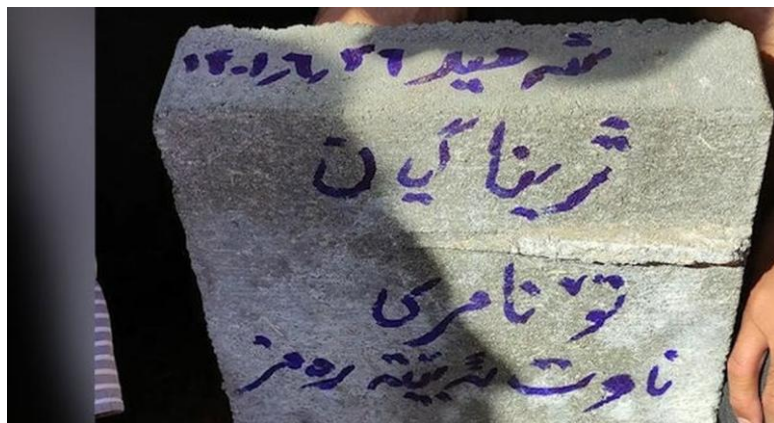 شەهید ١٤٠١/٦/٢٦
ژینا گیان
تۆ نامری
ناوت ئەبێتە ڕەمز